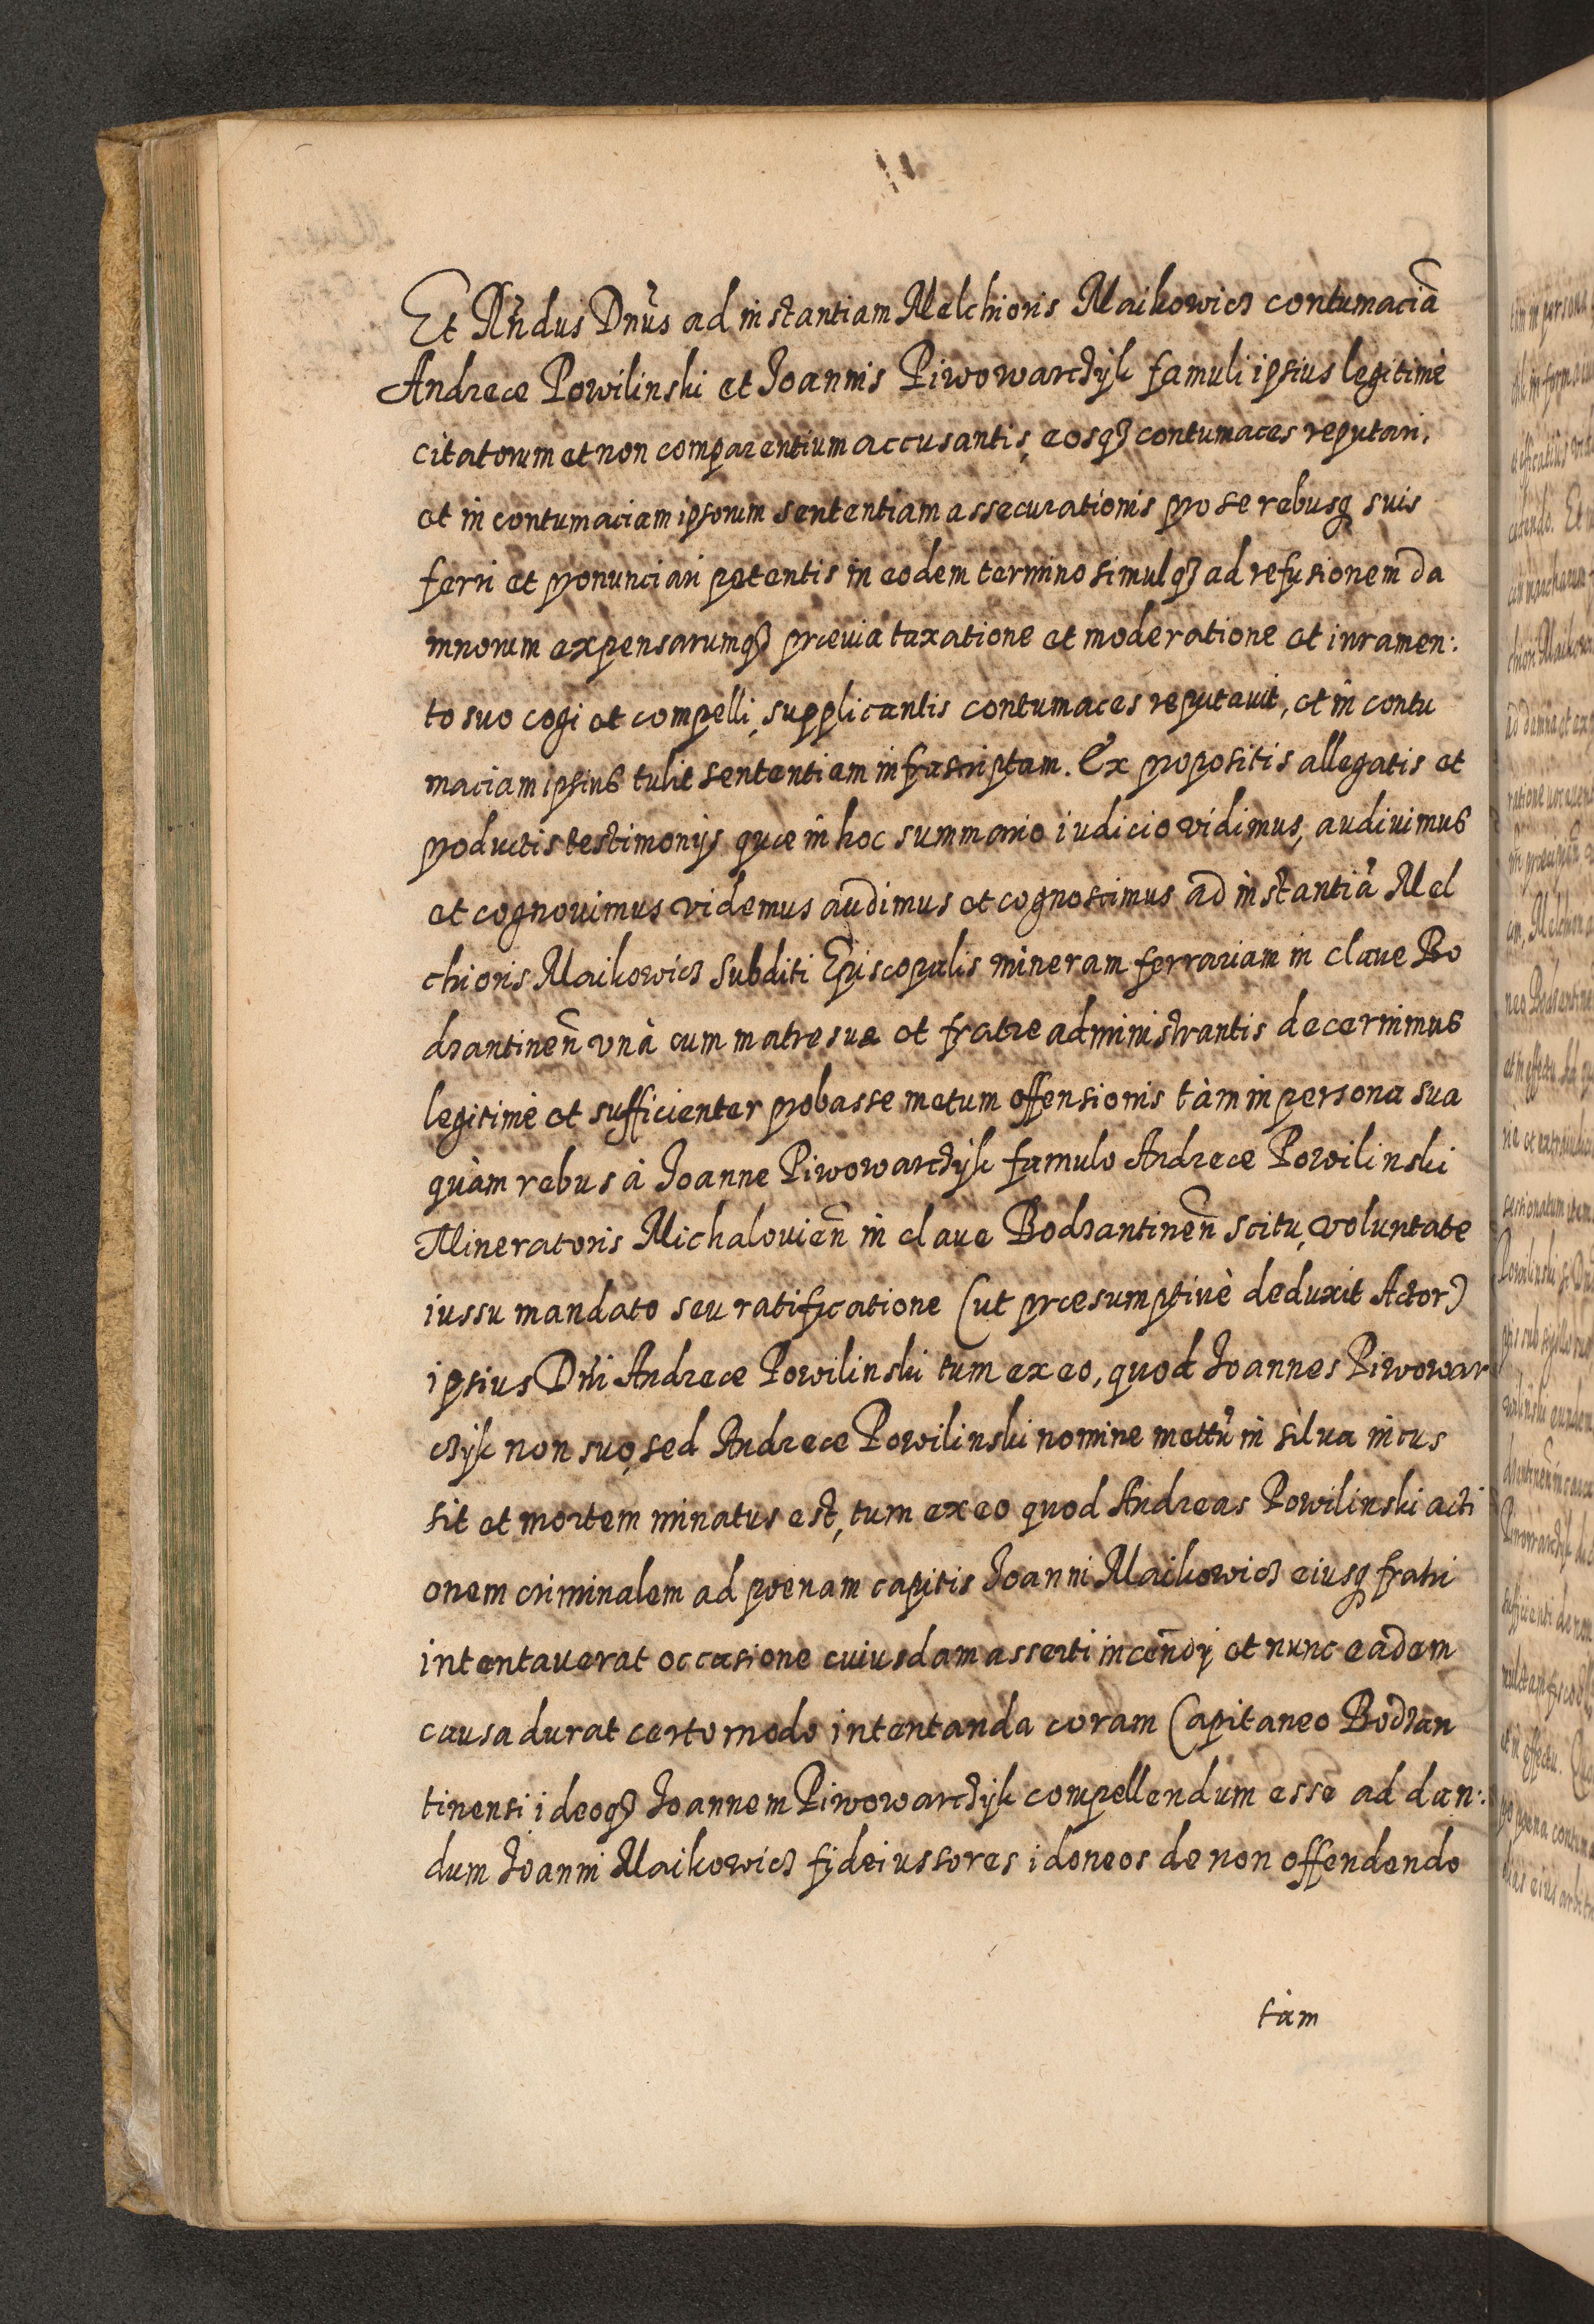 Et Rñdus Dnus ad instantiam Melchioris Maikowicz contumaciã
Andreæ Powilinski et Joannis Piwowarczÿk famuli ipsius legitimè
citatorum et non comparentium accusantis, eosqꝫ contumaces reputari,
et in contumaciam ipsorum sententiam assecurationis pro se rebusqꝫ suis
ferri et pronunciari petentis in eodem termino simulqꝫ ad refusionem da
mnorum expensarumqꝫ præuia taxatione et moderatione et iuramen:
to suo cogi et compelli, supplicantis contumaces reputauit, et in contu
maciam ipsius tulit sententiam infrascriptam. Ex propositis allegatis et
productis testimonijs quæ in hoc summario iudicio vidimus, audiuimus
et cognouimus videmus audimus et cognoscimus ad instantiã Mel
chioris Maikowicz subditi Episcopalis mineram ferrariam in claue Bo
dzantineñ vnà cum matre sua et fratre administrantis decernimus
legitimè et sufficienter probasse metum offensionis tàm in persona sua
quàm rebus à Joanne Piwowarczÿk famulo Andreæ Powilinski
Mineratoris Michalouieñ in claue Bodzantineñ scitu, voluntate
iussu mandato seu ratificatione (ut præsumptiuè deduxit Actor)
ipsius Dñi Andreæ Powilinski tum ex eo, quod Joannes Piwowar
czÿk non suo, sed Andreæ Powilinski nomine mettũ in silua incus
sit et mortem minatus est, tum ex eo quod Andreas Powilinski acti
onem criminalem ad poenam capitis Joanni Maikowicz eiusqꝫ fratri
intentauerat occasione cuiusdam asserti incendij et nunc eadem
causa durat certo modo intentanda coram Capitaneo Bodzan
tinensi, ideoqꝫ Joannem Piwowarczÿk compellendum esse ad dan:
dum Joanni Maikowicz fideiussores idoneos de non offendendo
tàm